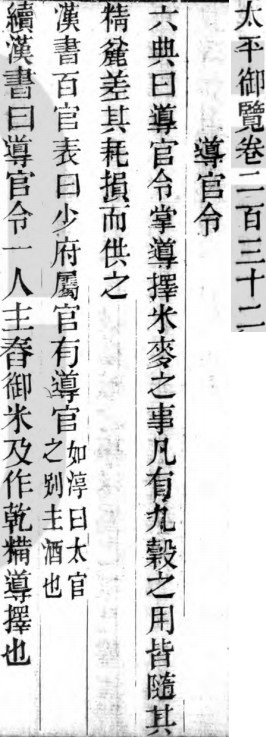 太平御覽卷二百三十二
導官令
六典曰導官令掌導擇米麥之事凡有九穀之用皆隨其
精麄差其耗損而供之
漢書百官表曰少府屬官有導官如淳曰太官
之别主酒也
續漢書曰導官令一人主舂御米及作乾糒導擇也